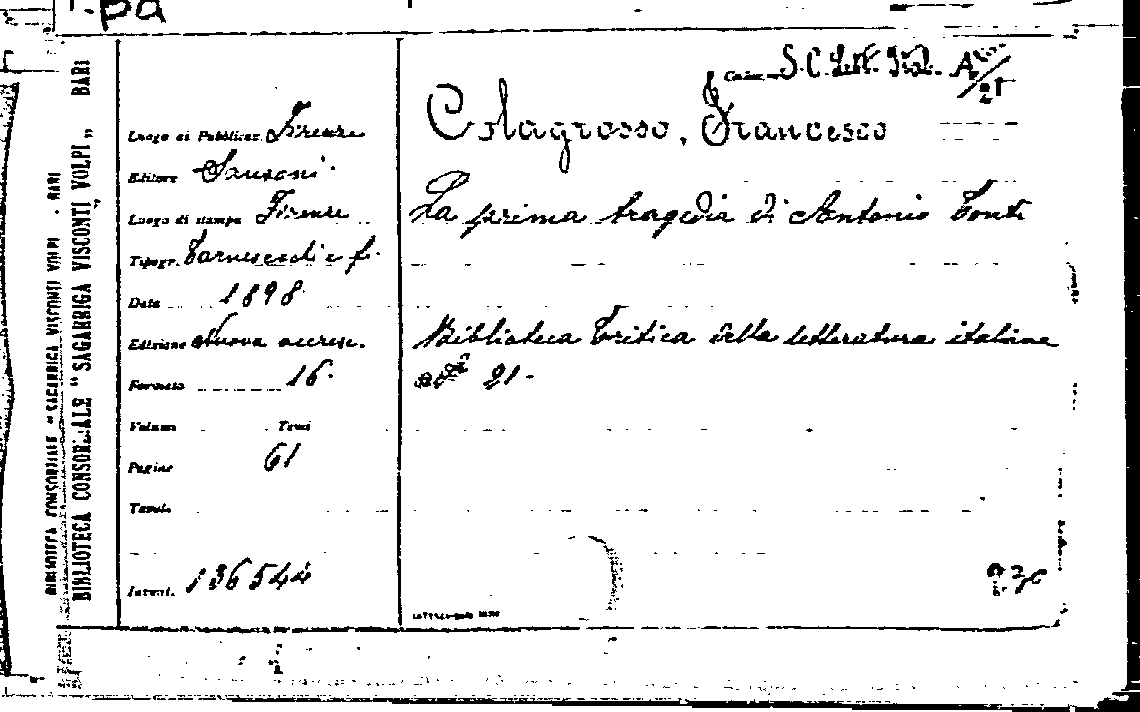 pa
BIBLIOTECA CONSORZIALE "SAGARRIGA VISCONTI VOLPI - BARI
BIBLIOTECA CONSORZIALE "SAGARRIGA VISCONTI VOLPI„ BARI
Luogo di Pubblicaz. Firenze
Editore Sansoni
Luogo di stampa Firenze
Tipogr. Carnesecchi e f.
Data 1898
Edizione Nuova accresc.
Formato 16.
Volume Tomi
Pagine 61
Tavole
Invent. 136544
S.C. Lett. Ital. A 21
Colagrosso, Francesco
La prima tragedia di Antonio Conti
Biblioteca Critica della letteratura italiana
21.